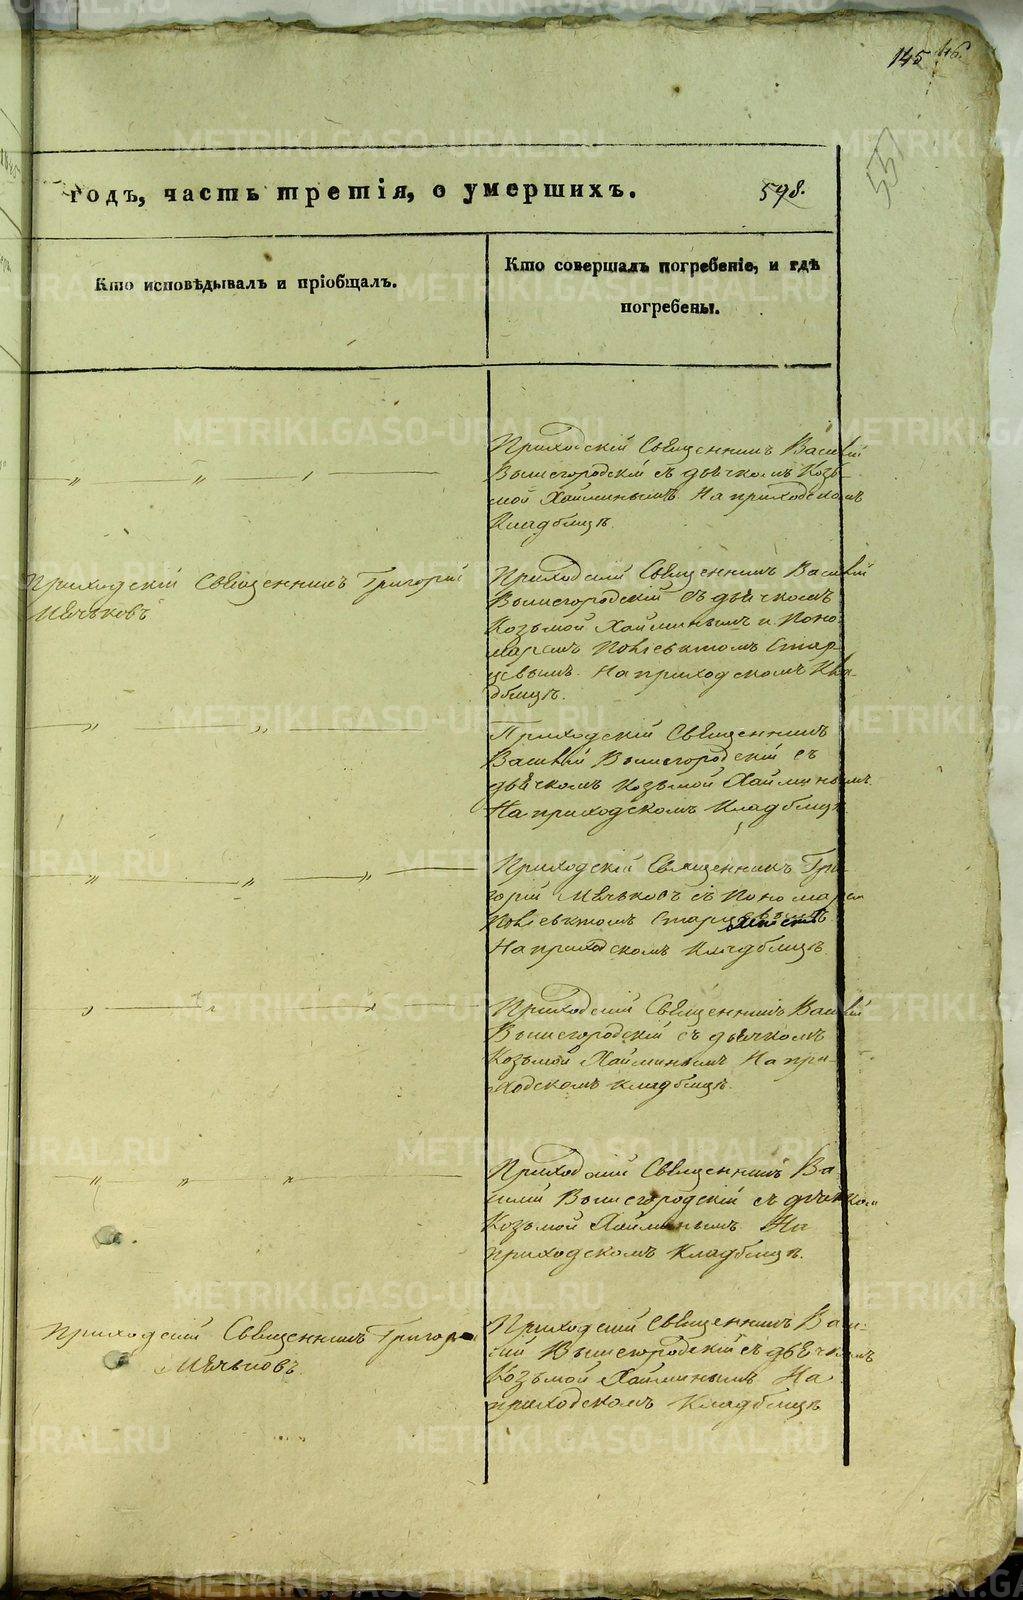 145 146.
годъ, часть третія, о умершихъ. 598.
Кто исповѣдывалъ и пріобщалъ.
Кто совершалъ погребеніе, и гдѣ
погребены.
Приходскій Священникъ Василій
Вышегородскій съ дьячкомъ Козь
мой Хайминымъ. На приходскомъ
Кладбищѣ.
Приходскій Священникъ Григорій
Мячковъ
Приходскій Священникъ Василій
Вышегородскій съ дьячкомъ
Козьмой Хайминымъ и Поно
маремъ Стар
цевымъ. На приходскомъ Кла-
дбищѣ.
Приходскій Священникъ
Василій Вышегородскій съ
дьячкомъ Козьмой Хайминымъ.
На приходскомъ Кладбищѣ
Приходскій Священникъ Гри
горій Мячковъ съ Пономарем
На приходскомъ Кладбищѣ.
Приходскій Священникъ Василій
Вышегородскій съ дьячкомъ
Козьмой Хайминымъ На при-
ходскомъ кладбищѣ.
Приходскій Священникъ Ва
силій Вышегородскій съ дьячком
Козьмой Хайминымъ. На
приходскомъ Кладбищѣ.
Приходскій Священникъ Григорій
Мячковъ.
Приходскій Священникъ Васи-
лій Вышегородскій съ дьячкомъ
Козьмой Хайминымъ На
приходскомъ Кладбищѣ
METRIKI.GASO-URAL.RU